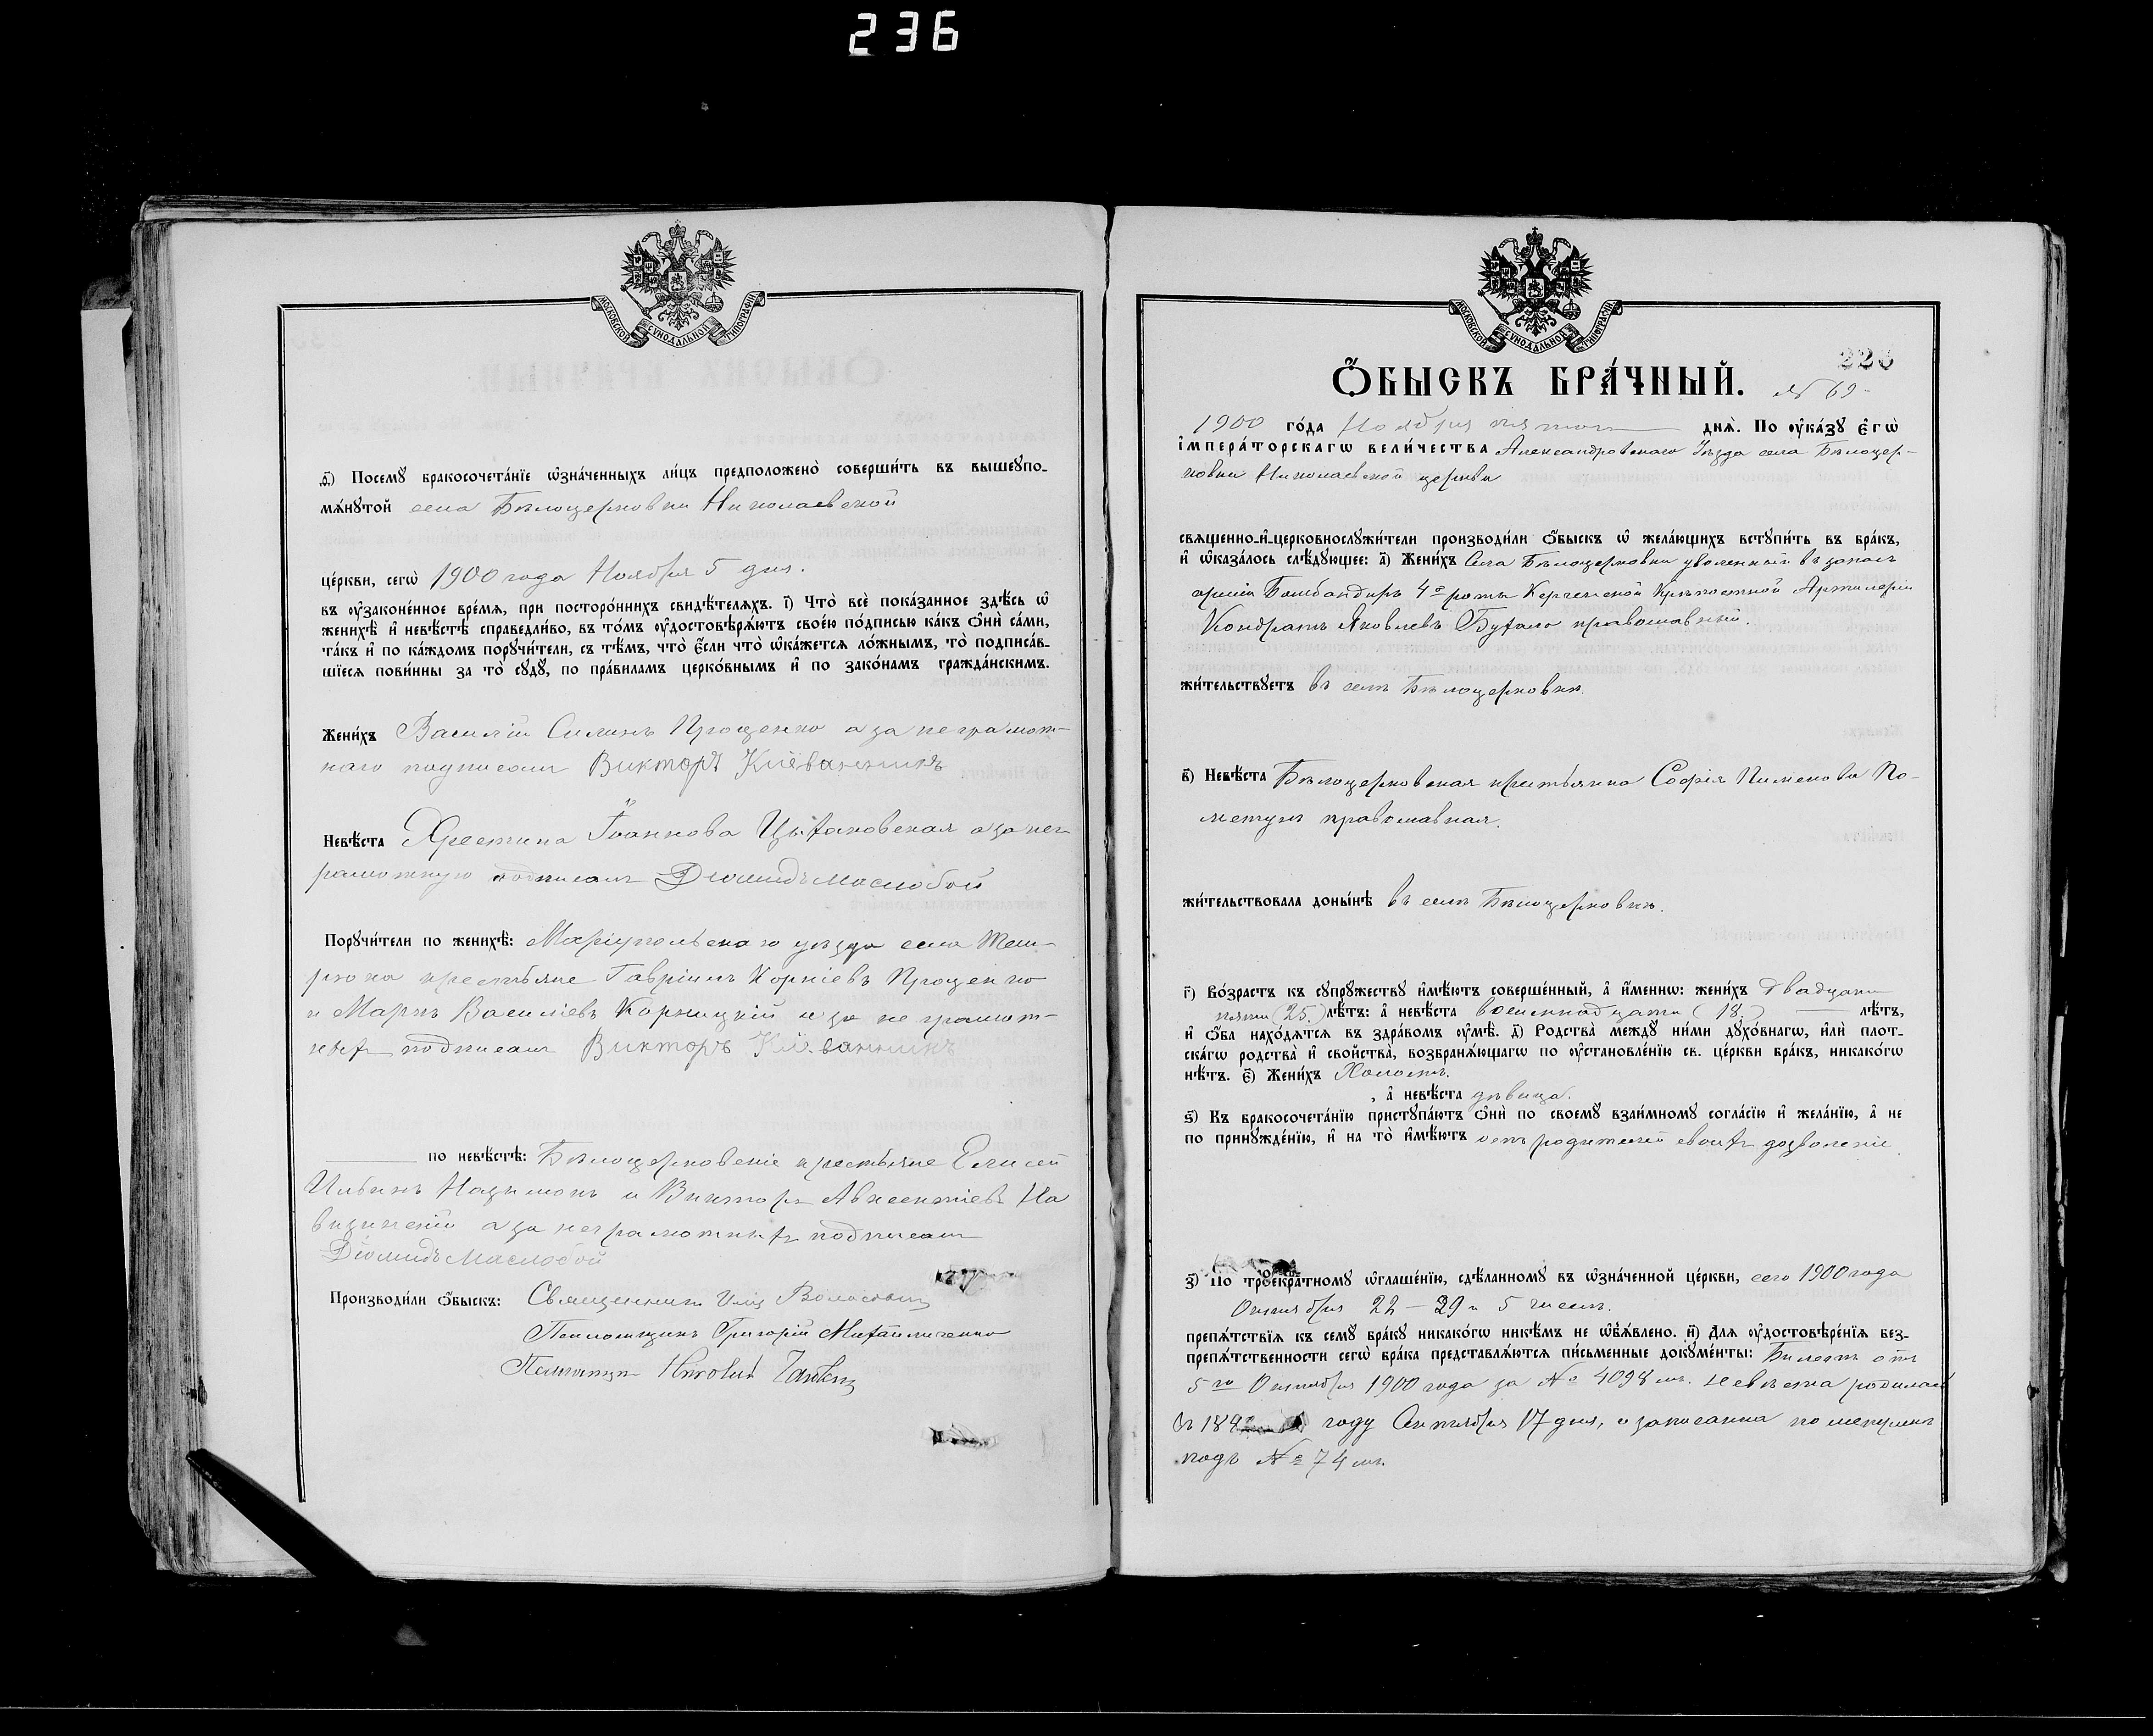 236
МОСКОВСКОЙ СѴНОДАЛЬНОЙ ТИПОГРАФІИ
ѳ҃) Посемꙋ бракосочета́нїе ѡ҆зна́ченныхъ ли́цъ предположено̀ соверши́ть въ вышеꙋпо-
мѧ́нꙋтой села Бѣлоцерковки Николаевской
це́ркви, сегѡ̀ 1900 года Ноября 5 дня.
въ ᲂу҆законе́нное вре́мѧ, при посторо́ннихъ свидѣ́телѧхъ. і҃) Что̀ всѐ пока́занное здѣ́сь ѡ҆
женихѣ̀ и҆ невѣ́стѣ справедли́во, въ то́мъ ᲂу҆достовѣрѧ́ютъ свое́ю по́дписью ка́къ ѻ҆нѝ са́ми,
та́къ и҆ по ка́ждомъ порꙋчи́тели, съ тѣ́мъ, что̀ є҆́сли что̀ ѡ҆ка́жетсѧ ло́жнымъ, то̀ подписа́в-
шїесѧ пови́нны за то̀ сꙋдꙋ̀, по пра́виламъ церко́внымъ и҆ по зако́намъ гражда́нскимъ.
Жени́хъ Василій Силинъ Проценко а за неграмот-
наго подписалъ Викторъ
Невѣ́ста Хрестина Іоаннова Цыхановская а за нег-
рамотную подписалъ Діомидъ Маслобой
Порꙋчи́тели по женихѣ̀: Маріупольскаго уѣзда села Тем-
рюка крестьяне Гавріилъ Корніевъ Проценко
и Маркъ Василіевъ Корницкій а за неграмот-
ныхъ подписалъ Викторъ
по невѣ́стѣ: Бѣлоцерковскіе крестьяне Елисей
Ильинъ и Викторъ Авксентіевъ
а за неграмотныхъ подписалъ
Діомидъ Маслобой
Производи́ли ѻ҆́быскъ: Священникъ
Псаломщикъ Григорій Михайличенко
Псаломщикъ
МОСКОВСКОЙ СѴНОДАЛЬНОЙ ТИПОГРАФІИ
226
Ѻ҆́БЫСКЪ БРА́ЧНЫЙ. № 69
1900 го́да Ноября пятого днѧ̀. По ᲂу҆ка́зꙋ є҆гѡ̀
і҆мпера́торскагѡ вели́чества Александровскаго Уѣзда села Бѣлоцер-
ковки Николаевской церкви
свѧщенно-и҆-церковнослꙋжи́тели производи́ли ѻ҆́быскъ ѡ҆ жела́ющихъ встꙋпи́ть въ бра́къ,
и҆ ѡ҆каза́лось слѣ́дꙋющее: а҃) Жени́хъ Села Бѣлоцерковки уволенный въ запасъ
арміи Бомбандиръ 4й роты Керченской Крѣпостной Артилеріи
Кондратъ Яковлевъ Бухало православный.
жи́тельствꙋетъ въ селѣ Бѣлоцерковкѣ.
в҃) Невѣ́ста Бѣлоцерковская крестьянка Софія Пименова По-
мегунъ православная.
жи́тельствовала доны́нѣ въ селѣ Бѣлоцерковкѣ.
г҃) Во́зрастъ къ сꙋпрꙋ́жествꙋ и҆мѣ́ютъ соверше́нный, а҆ и҆́меннѡ: жени́хъ двадцати
пяти (25.) лѣ́тъ: а҆ невѣ́ста восемнадцати (18.) лѣ́тъ,
и҆ ѻ҆́ба нахо́дѧтсѧ въ здра́вомъ ᲂу҆мѣ̀. д҃) Родства̀ междꙋ̀ ни́ми дꙋхо́внагѡ, и҆лѝ плот-
ска́гѡ родства̀ и҆ сво́йства̀, возбранѧ́ющагѡ по ᲂу҆становле́нїю св. це́ркви бра́къ, никако́гѡ
нѣ́тъ. є҃) Жени́хъ Холостъ.
, а҆ невѣ́ста дѣвица.
ѕ҃) Къ бракосочета́нїю пристꙋпа́ютъ ѻ҆нѝ по своемꙋ̀ взаи́мномꙋ согла́сїю и҆ жела́нїю, а҆ не
по принꙋжде́нїю, и҆ на то̀ и҆мѣ́ютъ отъ родителей своихъ дозволеніе.
з҃) По троекра́тномꙋ ѡ҆глаше́нїю, сдѣ́ланномꙋ въ ѡ҆зна́ченной це́ркви, сего 1900 года
Октября 22 — 29 и 5 числъ.
препѧ́тствїѧ къ семꙋ̀ бра́кꙋ никако́гѡ никѣ́мъ не ѡ҆б̾ѧ́влено. и҃) Длѧ̀ ᲂу҆достовѣре́нїѧ без-
препѧ́тственности сегѡ̀ бра́ка представлѧ́ютсѧ пи́сьменные докꙋме́нты: Билетъ отъ
5го Октября 1900 года за № 4098 мъ. Невѣста родилась
въ году Сентября 17 дня, и записанна по метрикѣ
подъ № 74 мъ.